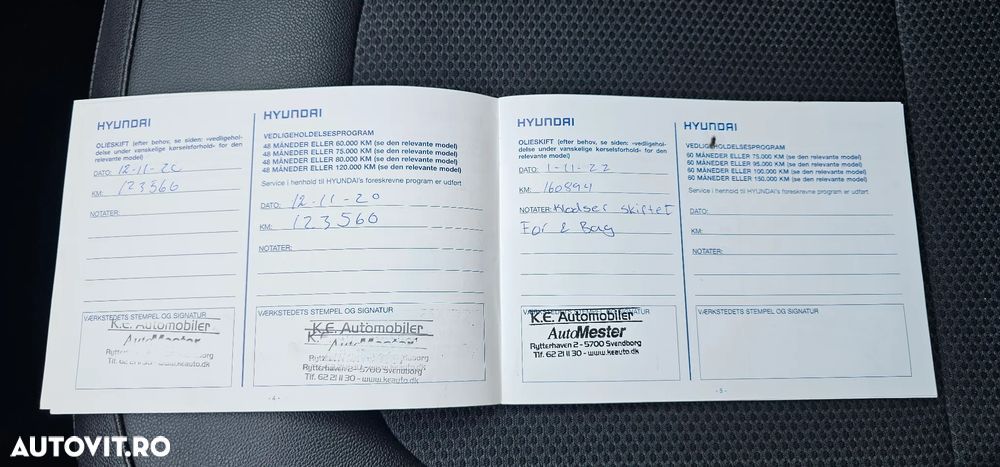 HYUNDAI
OLIESKIFT (efter behov, se siden: »vedligehol-
delse under vanskelige kørselsforhold« for den
relevante model)
DATO: 12-11-20
KM: 123560
NOTATER:
VÆRKSTEDETS STEMPEL OG SIGNATUR
K.E. Automobiler
AutoMester
Tlf. 62 21 11 30 - www.keauto.dk
HYUNDAI
VEDLIGEHOLDELSESPROGRAM
48 MÅNEDER ELLER 60.000 KM (se den relevante model)
48 MÅNEDER ELLER 75.000 KM (se den relevante model)
48 MÅNEDER ELLER 80.000 KM (se den relevante model)
48 MÅNEDER ELLER 120.000 KM (se den relevante model)
Service i henhold til HYUNDAI's foreskrevne program er udført
DATO: 12-11-20
KM: 123560
NOTATER:
VÆRKSTEDETS STEMPEL OG SIGNATUR
K.E. Automobiler
Rytterhaven 2 - 5700 Svendborg
Tlf. 62 21 11 30 - www.keauto.dk
- 4 -
HYUNDAI
OLIESKIFT (efter behov, se siden: »vedligehol-
delse under vanskelige kørselsforhold« for den
relevante model)
DATO: 1-11-22
KM: 160894
NOTATER: Klodser skiftet
For & Bag
VÆRKSTEDETS STEMPEL OG SIGNATUR
K.E. Automobiler
AutoMester
Rytterhaven 2 - 5700 Svendborg
Tlf. 62 21 11 30 - www.keauto.dk
HYUNDAI
VEDLIGEHOLDELSESPROGRAM
60 MÅNEDER ELLER 75.000 KM (se den relevante model)
60 MÅNEDER ELLER 95.000 KM (se den relevante model)
60 MÅNEDER ELLER 100.000 KM (se den relevante model)
60 MÅNEDER ELLER 150.000 KM (se den relevante model)
Service i henhold til HYUNDAI's foreskrevne program er udført
DATO:
KM:
NOTATER:
VÆRKSTEDETS STEMPEL OG SIGNATUR
- 5 -
AUTOVIT.RO